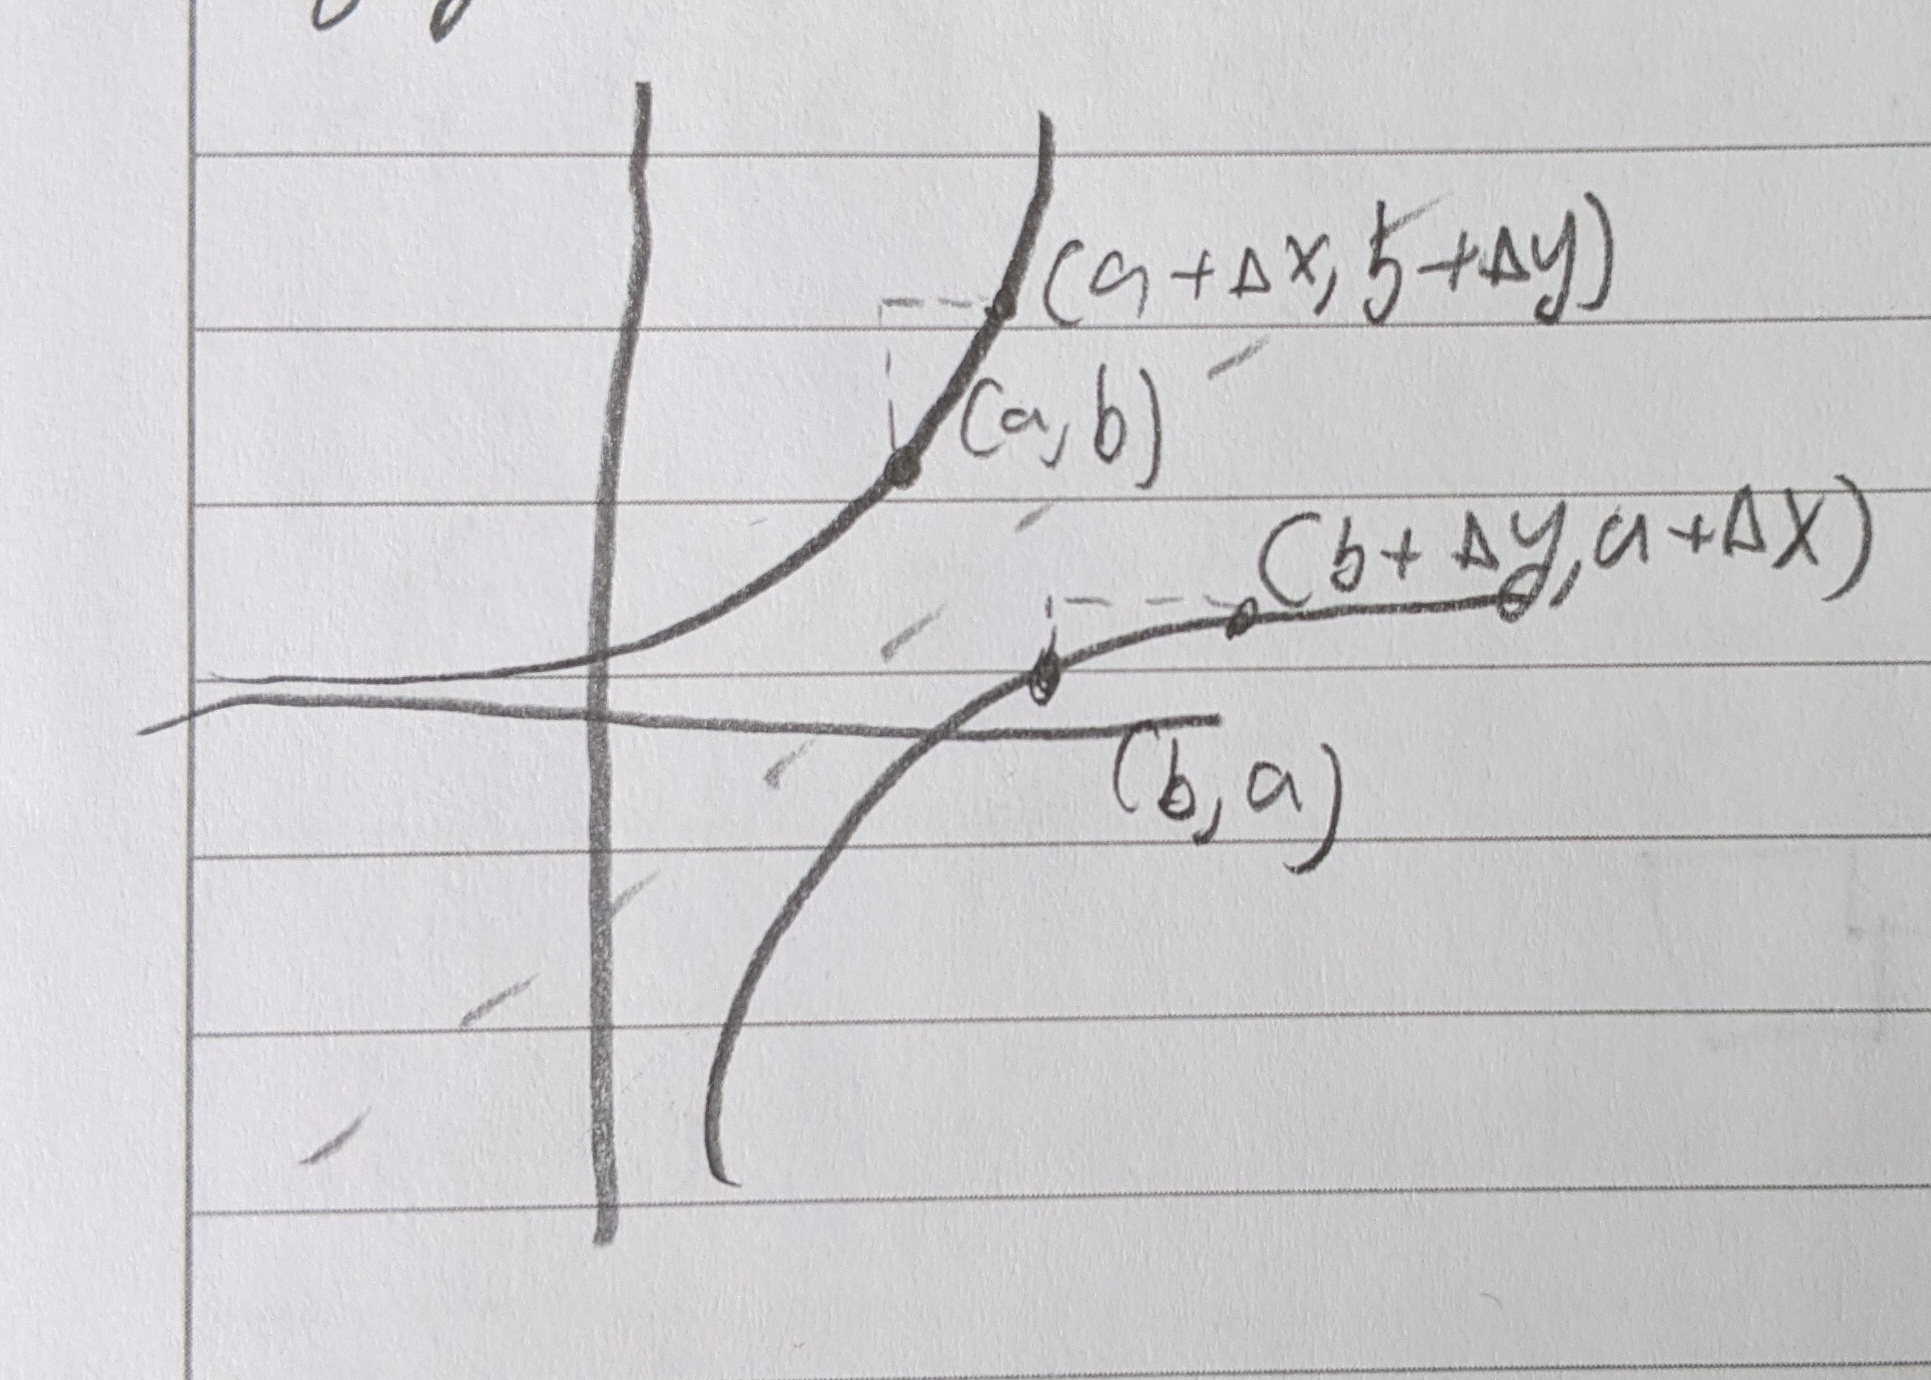 (a+Δx, b+Δy)
(a, b)
(b+Δy, a+Δx)
(b, a)